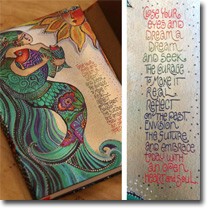 Close Your
eyes and
Dream a
Dream
and Seek
the courage
to Make it
Real
Reflect
on the past
Envision
the future
and embrace
today with
an open
heart and soul